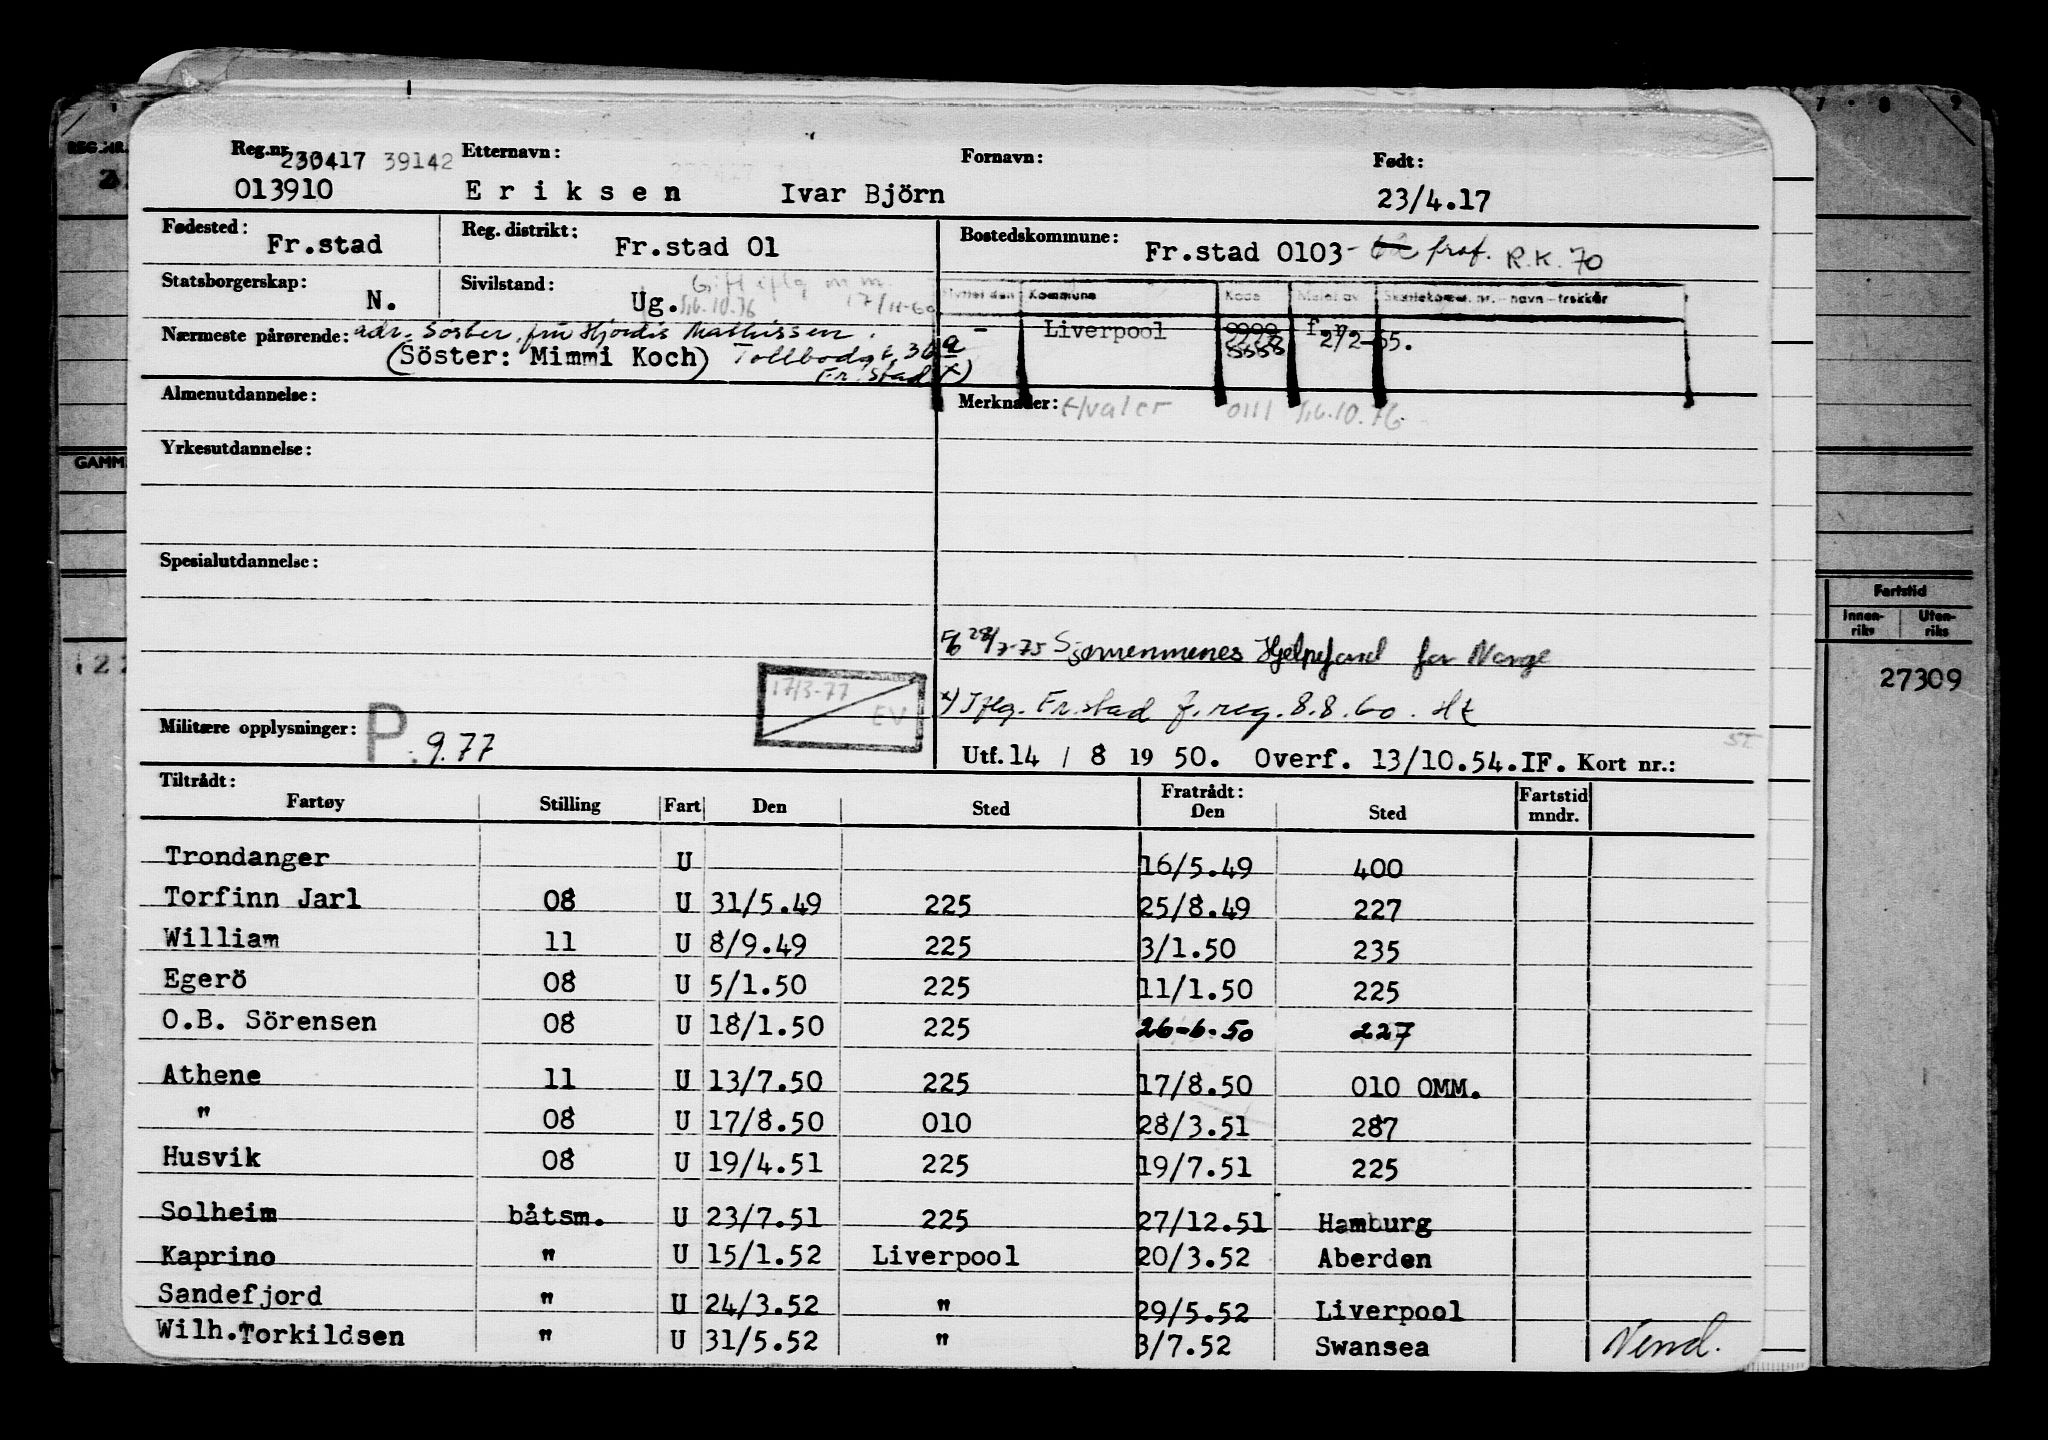 Reg.nr. 230417 39142 Etternavn: Fornavn: Født:
013910 Eriksen Ivar Björn 23/4.17
Fødested: Fr.stad Reg. distrikt: Fr.stad 01 Bostedskommune: Fr.stad 0103 - prof. R.K. 70
Statsborgerskap: N. Sivilstand: Ug. Gift iflg m.m. 17/11-60
16.10.76
Flyttet den Kommune Kode Meldt av Skattekomm. nr. - navn - trekkår
- Liverpool 9999 2/2-65.
Nærmeste pårørende: adr. Söster, fru Hjordis Mathissen.
(Söster: Mimmi Koch) Tollbodgt. 30 a
Fr.stad x)
Almenutdannelse: Merknader: Hvaler 0111 16.10.76
Yrkesutdannelse:
Spesialutdannelse:
28/7-75 Sjømennenes Hjelpefond for Norge
17/3-77
EV
x) Iflg. Fr.stad f.reg. 8.8.60. Ht
Militære opplysninger: P . 9.77
Utf. 14 / 8 19 50. Overf. 13/10.54. IF. Kort nr.:
Tiltrådt: Fratrådt: Fartstid
Fartøy Stilling Fart Den Sted Den Sted mndr.
Trondanger U 16/5.49 400
Torfinn Jarl 08 U 31/5.49 225 25/8.49 227
William 11 U 8/9.49 225 3/1.50 235
Egerö 08 U 5/1.50 225 11/1.50 225
O.B. Sörensen 08 U 18/1.50 225 26-6.50 227
Athene 11 U 13/7.50 225 17/8.50 010 OMM.
" 08 U 17/8.50 010 28/3.51 287
Husvik 08 U 19/4.51 225 19/7.51 225
Solheim båtsm. U 23/7.51 225 27/12.51 Hamburg
Kaprino " U 15/1.52 Liverpool 20/3.52 Aberden
Sandefjord " U 24/3.52 " 29/5.52 Liverpool
Wilh. Torkildsen " U 31/5.52 " 3/7.52 Swansea
Vend.
REG.NR.
GAMM
122
7 · 8 9
Fartstid
Innen-riks Uten-riks
27309